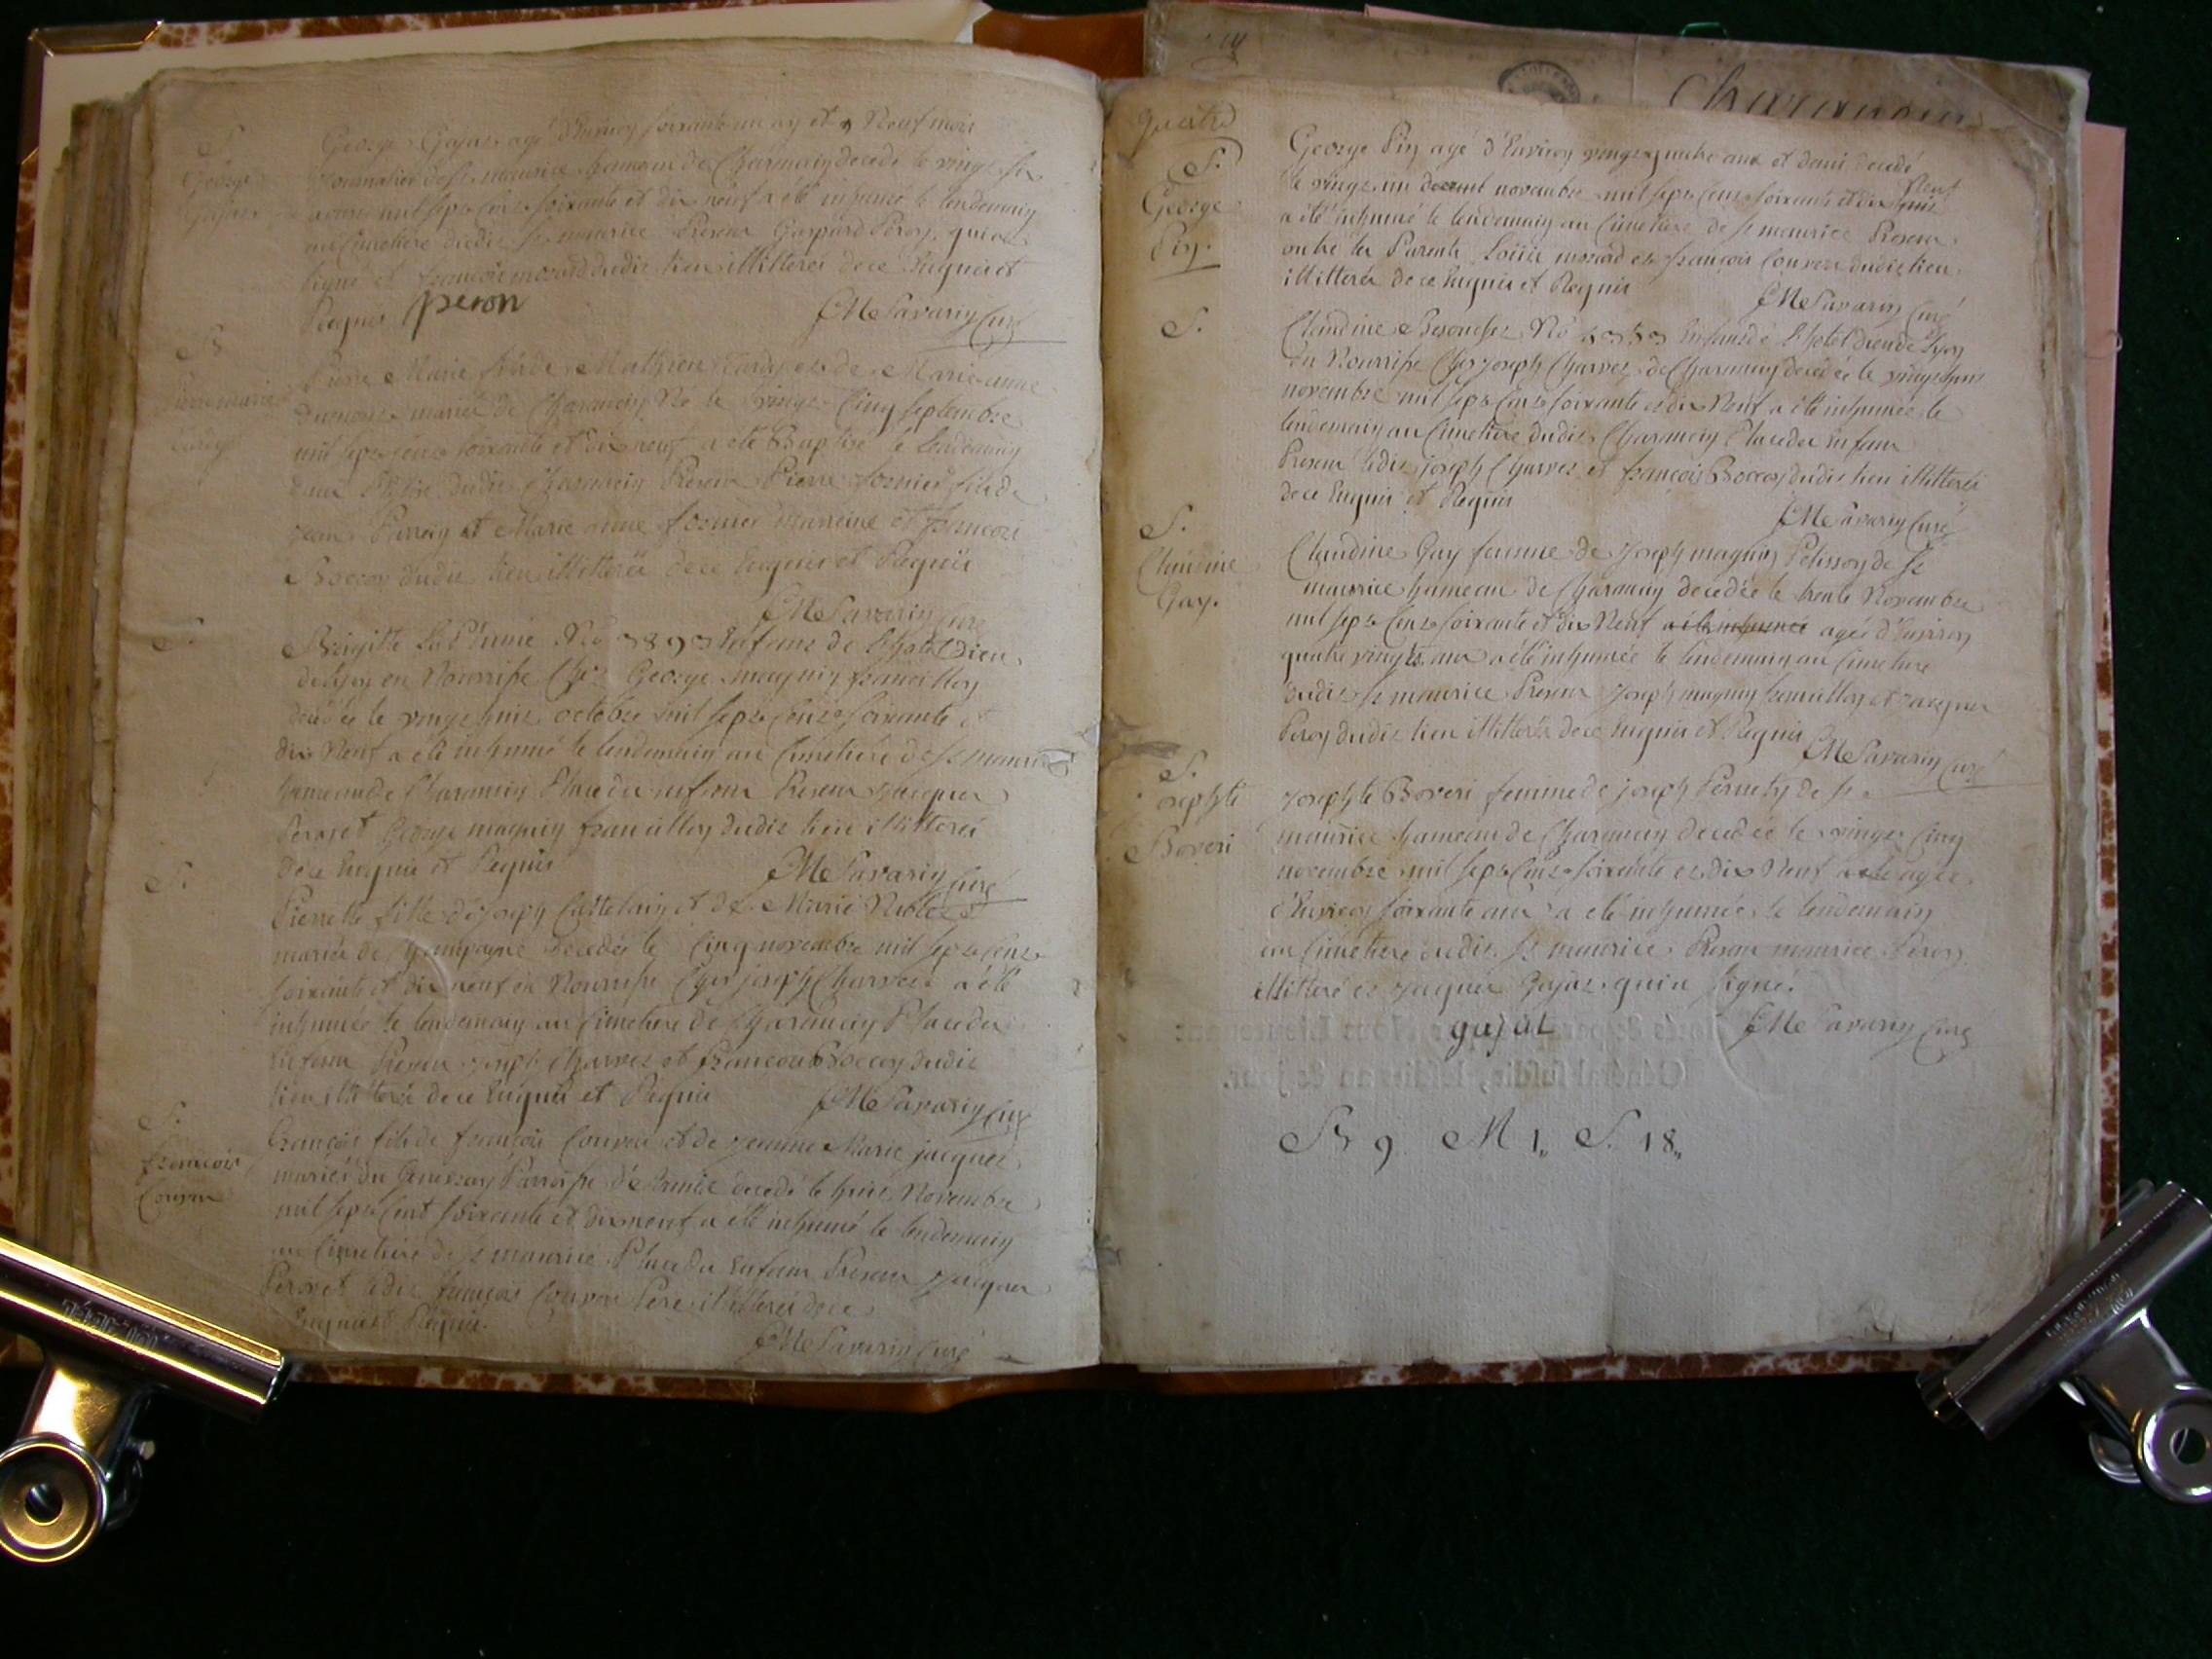 S.
George
Gajat
George Gajat agé d'Environ soixante un an et 9 Neuf mois
Journalier de st maurice hameau de Charancin decedé le vingt six
aoust mil sept cent soixante et dix neuf a été inhumé le lendemain
au Cimetiere dudit st maurice Present Gaspard Peron, qui a
signé et françois morard dudit lieu illitteré de ce Enquis et
Requis peron
CMe Savarin Curé
B
Pierre marie
Tardy
Pierre Marie fils de Mathieu Tardy et de Marie anne
dumont mariés de Charancin Né le vingt Cinq septembre
mil sept cent soixante et dix neuf a été Baptisé le lendemain
dans l'Eglise dudit Charancin Present Pierre fornier fils de
jean Parrain et Marie anne fornier marraine et françois
Boccon dudit lieu illitterés de ce Enquis et Requis
CMe Savarin Curé
S.
Brigitte No 3893 Enfant de l'hotel Dieu
de lyon en Nourrisse Chez George magnin francillon
decedée le vingt huit octobre mil sept cent soixante et
dix Neuf a été inhumé le lendemain au Cimetiere de st maurice
hameau de Charancin Place des enfans Present jacques
Peron et George magnin francillon dudit lieu illitterés
de ce Enquis et Requis
CMe Savarin Curé
S.
Pierrette fille de joseph Castelain et de Marie
mariés de Champagne decedée le Cinq novembre mil sept cent
soixante et dix neuf en Nourrisse Chez joseph Charvet a été
inhumée le lendemain au Cimetiere de Charancin Place des
Enfans Present joseph Charvet et françois Boccon dudit
lieu illitterés de ce Enquis et Requis
CMe Savarin Curé
S.
françois
Couron
françois fils de françois Couron et de jeanne Marie jacquet
mariés du Paroisse de decedé le huit Novembre
mil sept Cent soixante et dix neuf a été inhumé le lendemain
au Cimetiere de st maurice Place des Enfans Present jacques
Peron et ledit françois Couron Pere illitterés de ce
Enquis et Requis.
CMe Savarin Curé
Charancin
quatre
S.
George
Pin.
George Pin agé d'Environ vingt quatre ans et demi decedé
le vingt un novembre mil sept Cent soixante et dix Neuf
a été inhumé le lendemain au Cimetiere de st maurice Present
outre les Parents Loüis morard et françois Couron dudit lieu
illitterés de ce Enquis et Requis
CMe Savarin Curé
S.
Claudine No Enfant de l'hotel dieu de lyon
En Nourrisse Chez joseph Charvet de Charancin decedée le vingt huit
novembre mil sept Cent soixante et dix Neuf a été inhumée le
lendemain au Cimetiere dudit Charancin Place des Enfans
Present ledit joseph Charvet et françois Boccon dudit lieu illitterés
de ce Enquis et Requis
CMe Savarin Curé
S.
Claudine
Gay.
Claudine Gay femme de joseph magnin Pelisson de st
maurice hameau de Charancin decedée le trente Novembre
mil sept Cent soixante et dix Neuf a été inhumée agée d'Environ
quatre vingts ans a été inhumée le lendemain au Cimetiere
dudit st maurice Present joseph magnin francillon et jacques
Peron dudit lieu illitterés de ce Enquis et Requis
CMe Savarin Curé
S.
josephte
Boveri
josephte Boveri femme de joseph Pernety de st
maurice hameau de Charancin decedée le vingt Cinq
novembre mil sept Cent soixante et dix Neuf agée
d'Environ soixante ans a été inhumée le lendemain
au Cimetiere dudit st maurice Present maurice Peron
illitteré et jacques Gajat qui a signé.
gajat CMe Savarin Curé
B 9. M 1,, S. 18,,